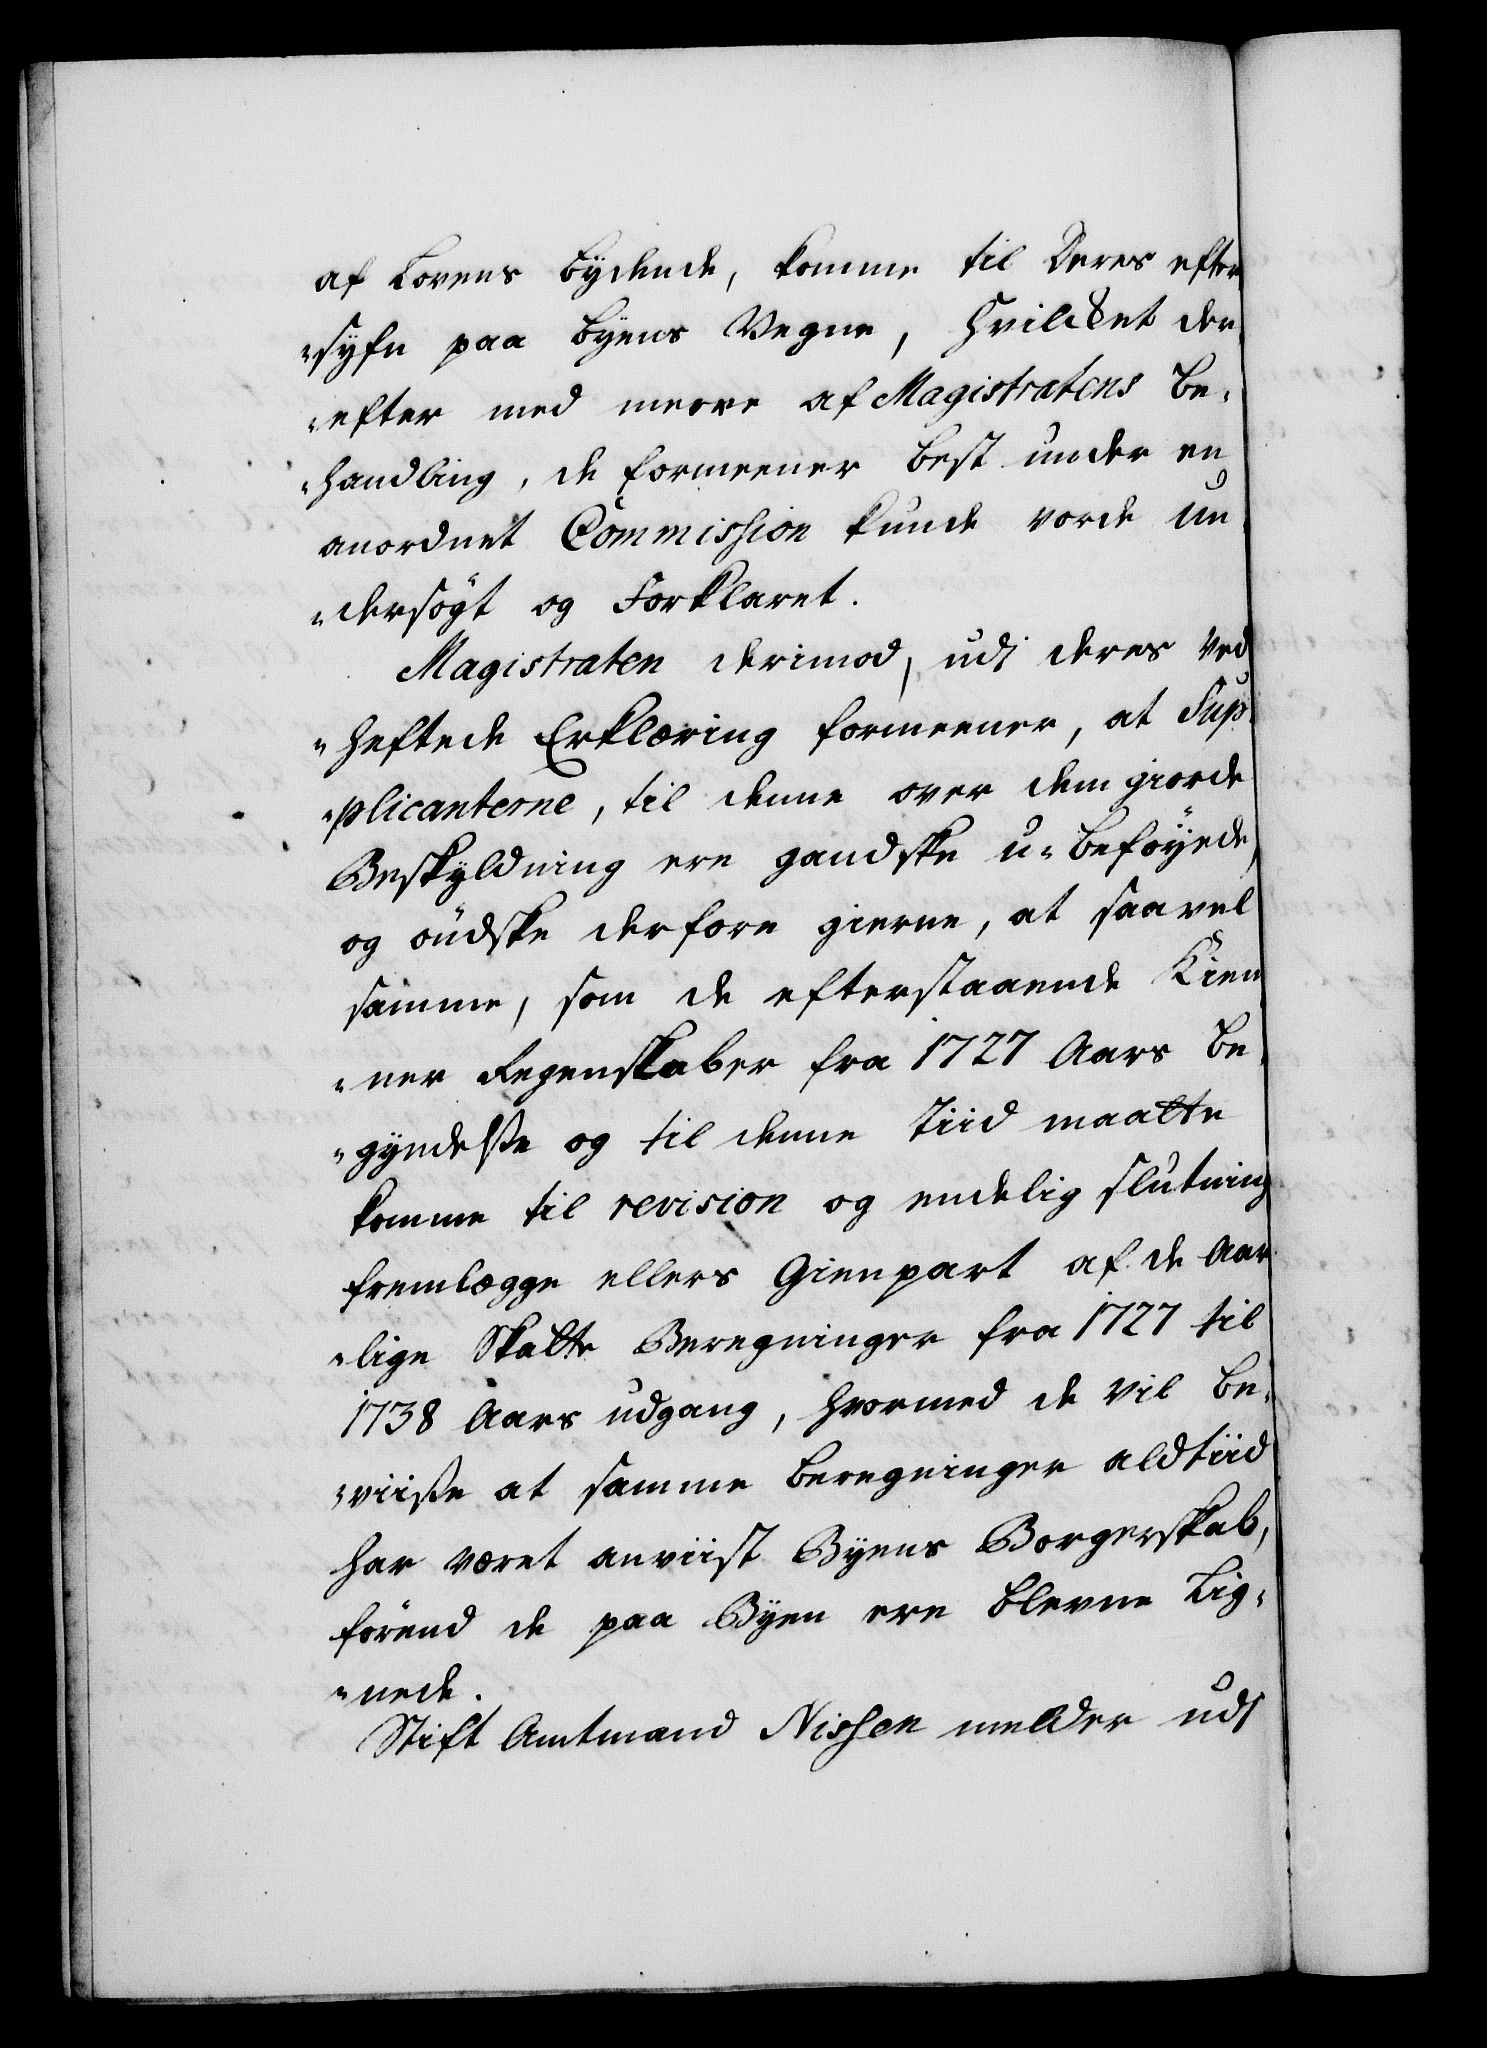 af Lovens bydende, komme til Deres efter
„syfn paa Byens Vegne, hvilcket der
„efter med meere af Magistratens be„
„handling, de formeener best under en
anordnet Commission kunde vorde un
„dersøgt og Forklaret.
Magistraten derimod, udi deres ved
„heftede Erklæring formeener, at Sup
„plicanterne, til denne over dem giorde
Beskyldning ere gandske u„beføyede,
og øndske derfore gierne, at saavel
samme, som de efterstaaende Kiem
„ner Regenskaber fra 1727 Aars be„
„gyndelse og til denne Tiid maatte
komme til revision og endelig slutning
fremlægge ellers Gienpart af de Aar
„lige Skatte Beregninger fra 1727 til
1738 Aars udgang, hvormed de vil be„
„viise at samme beregninger aldtiid
har været anviist Byens Borgerskab,
førend de paa Byen ere blevne Lig„
„nede.
Stift Amtmand Nissen melder udi